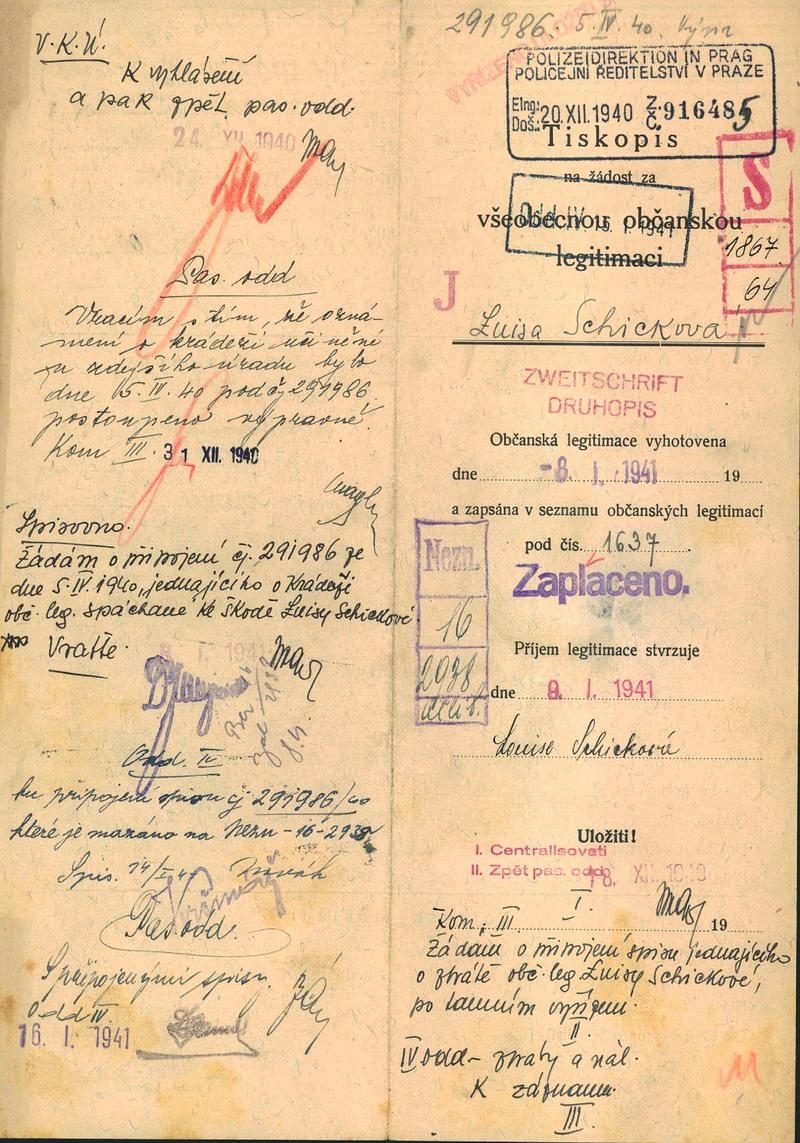 V.K.Ú.
K vyhlášení
a pak zpět pas. odd.
24 XII 1940
Pas. odd
Vracím s tím, že ozná-
mení o krádeži učiněné
u zdejšího úřadu bylo
dne 15. IV. 40 pod čj 291986
postoupeno výpravně.
Kom III. 31 XII. 1940
Spisovna.
Žádám o připojení čj. 291986 ze
dne 5. IV. 1940, jednajícího o krádeži
obč. leg. spáchané ke škodě Luisy Schickové
Vraťte.
I. 1941
Odd. IV
připojení spisu čj 291986/40
které je mazáno na Nezn - 16 - 2938
Spis.
Pas. odd.
S připojenými spisy
Odd IV.
16. I. 1941
291986. 5. IV. 40.
POLIZEIDIREKTION IN PRAG
POLICEJNÍ ŘEDITELSTVÍ V PRAZE
Elng.: Doš.: 20. XII. 1940 Z. Č. 916485
Tiskopis
na žádost za
všeobecnou občanskou
legitimaci
Odd. IV 15. I. 1941
S
1867
64
J
Luisa Schickova
ZWEITSCHRIFT
DRUHOPIS
Občanská legitimace vyhotovena
dne -8. I. 1941 19
a zapsána v seznamu občanských legitimací
pod čís. 1637.
Nezn.
16
2938
Zaplaceno.
Příjem legitimace stvrzuje
dne 9. I. 1941
Louise Schicková
Uložiti!
I. Centralisovati
II. Zpět pas. odd.
18. XII. 1940
I.
Kom. III 19
Žádám o připojení spisu jednajícího
o ztrátě obč. leg. Luisy Schickové,
po tamním vyřízení.
II.
IV odd - ztráty a nál.
K záznamu.
III.